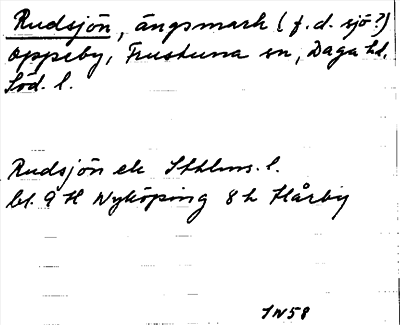 Rudsjön, ängsmark (f.d. sjö?)
Oppeby, Frustuna sn, Daga hd,
Söd. l.
Rudsjön ek Sthlms. l.
bl. 9 H Nyköping 8 h Hårby
IN58